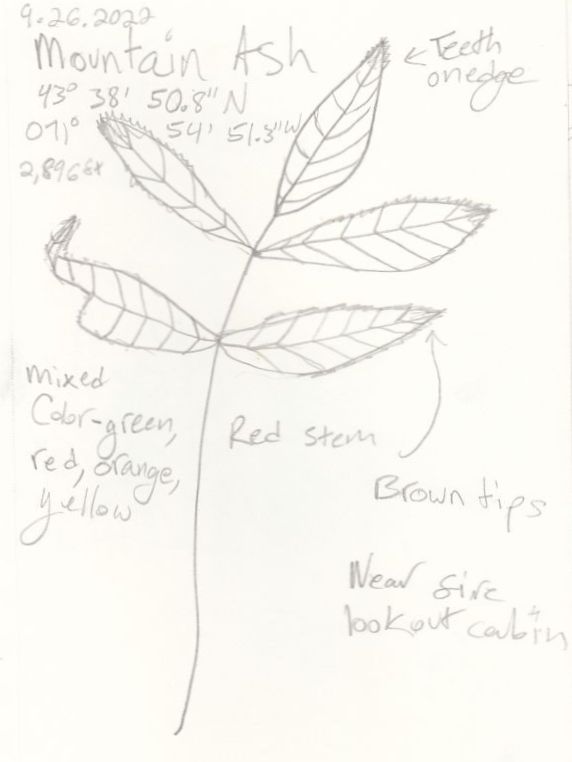 9.26.2022
Mountain Ash
43° 38' 50.8" N
071° 54' 51.3" W
2,896 ft
← Teeth
on edge
mixed
Color-green,
red, orange,
yellow
Red stem
Brown tips
Near fire
lookout cabin